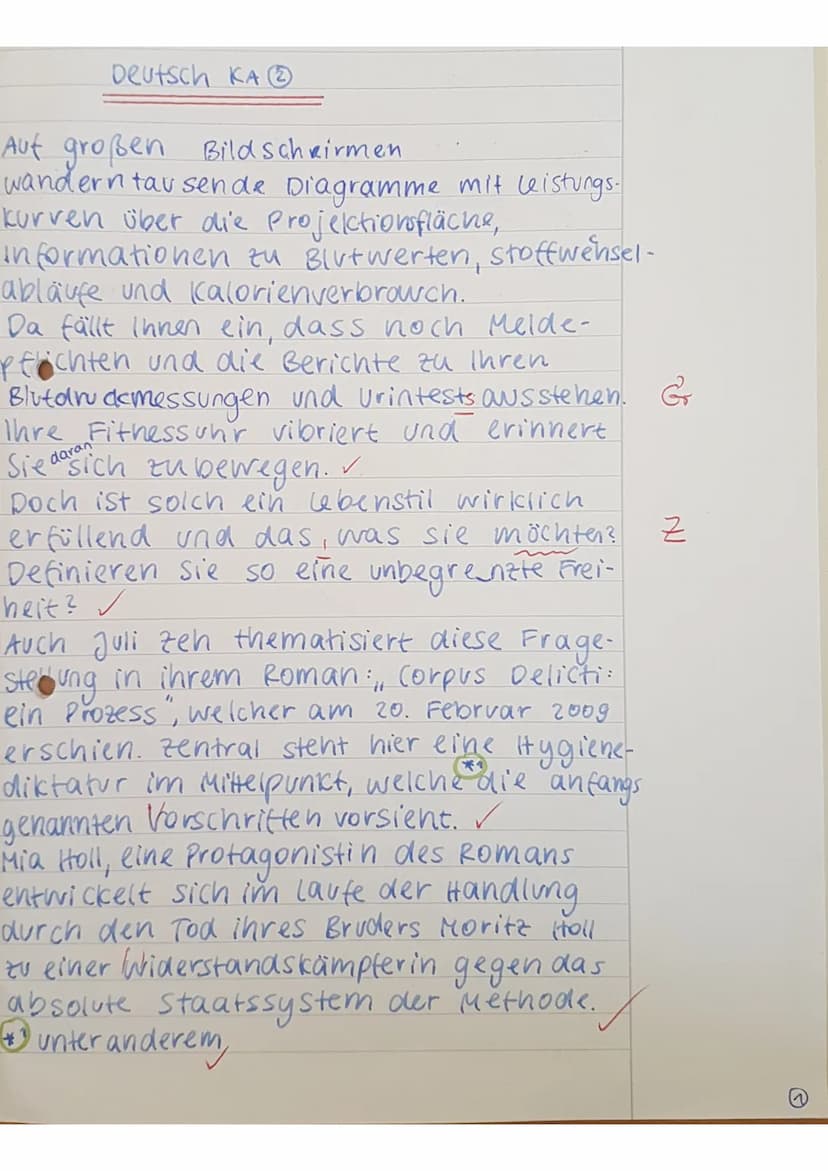 Deutsch KA ②
Auf großen Bildschirmen
wandern tausende Diagramme mit Leistungs-
kurven über die Projektionsfläche,
Informationen zu Blutwerten, Stoffwehsel-
c
abläufe und Kalorienverbrauch.
Da fällt Ihnen ein, dass noch Melde-
pflichten und die Berichte zu Ihren
Blutdruckmessungen und Urintests ausstehen. Gr
Ihre Fitnessuhr vibriert und erinnert
Sie daran sich zu bewegen. ✓
Doch ist solch ein Lebenstil wirklich
erfüllend und das, was sie möchten? Z
Definieren Sie so eine unbegrenzte Frei-
heit? ✓
Auch Juli Zeh thematisiert diese Frage-
stellung in ihrem Roman: „Corpus Delicti:
ein Prozess", welcher am 20. Februar 2009
erschien. Zentral steht hier eine Hygiene-
diktatur im Mittelpunkt, welche *1 die anfangs
genannten Vorschriften vorsieht. ✓
Mia Holl, eine Protagonistin des Romans
entwickelt sich im Laufe der Handlung
durch den Tod ihres Bruders Moritz Holl
zu einer Widerstandskämpferin gegen das
absolute Staatssystem der Methode. ✓
*1 unter anderem ✓
①